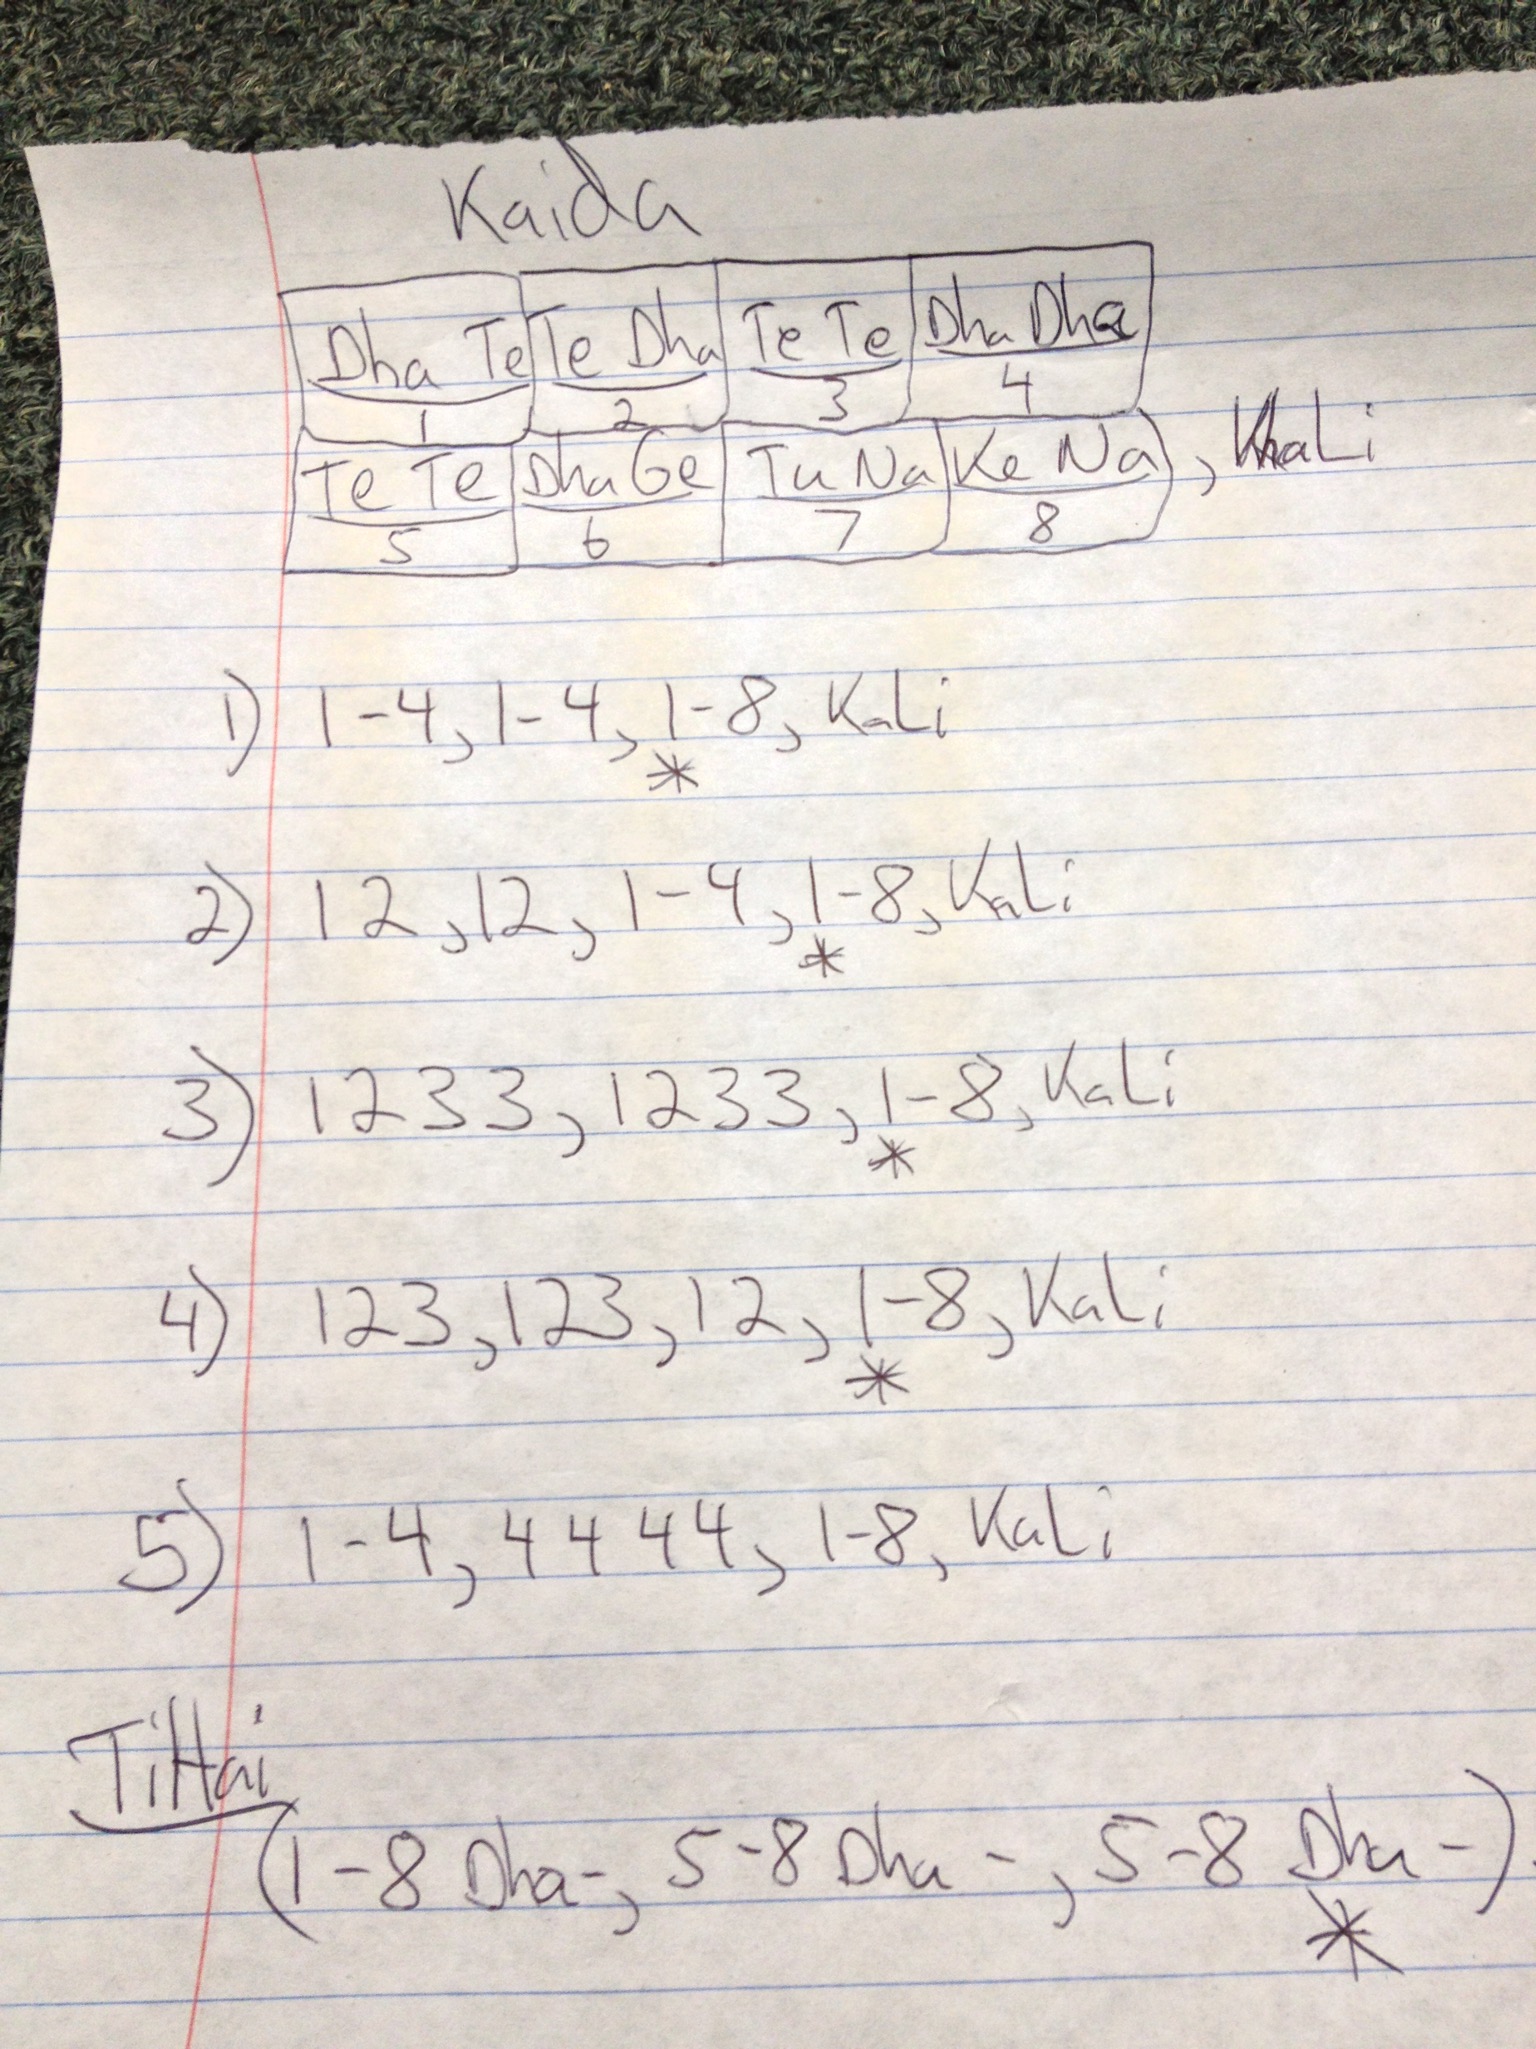 Kaida
Dha Te Te Dha Te Te Dha Dha
1 2 3 4
Te Te Dha Ge Tu Na Ke Na , KhaLi
5 6 7 8
1) 1-4, 1-4, 1-8, KaLi
*
2) 12, 12, 1-4, 1-8, KaLi
*
3) 1233, 1233, 1-8, KaLi
*
4) 123, 123, 12, 1-8, KaLi
*
5) 1-4, 4444, 1-8, KaLi
TiHai
(1-8 Dha-, 5-8 Dha -, 5-8 Dha -)
*